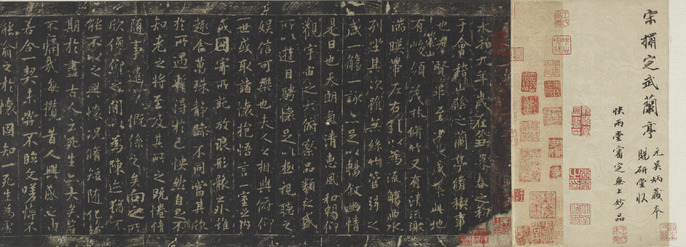 宋搨定武蘭亭
元吳炳藏本
晚研堂收
快雨堂審定無上妙品
永和九年歲在癸丑暮春之初
于會稽山陰之蘭亭脩稧事
也羣賢畢至少長咸集此地
有峻領茂林脩竹又有清流激
湍暎帶左右引以為流觴曲水
列坐其次雖無絲竹管弦之
盛一觴一詠亦足以暢敘幽情
是日也天朗氣清惠風和暢仰
觀宇宙之大俯察品類之盛
所以遊目騁懷足以極視聽之
娛信可樂也夫人之相與俯仰
一世或取諸懷抱悟言一室之內
或因寄所託放浪形骸之外雖
趣舍萬殊靜躁不同當其欣
於所遇蹔得於己怏然自足不
知老之將至及其所之既惓情
隨事遷感慨係之矣向之所
欣俛仰之閒以為陳迹猶不
能不以之興懷況脩短隨化終
期於盡古人云死生亦大矣豈
不痛哉每攬昔人興感之由
若合一契未嘗不臨文嗟悼不
能喻之於懷固知一死生為虛